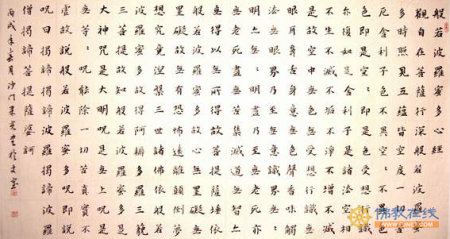 般若波羅蜜多心經
觀自在菩薩行深般若波羅蜜
多時照見五蘊皆空度一切苦
厄舍利子色不異空空不異色
色即是空空即是色受想行識
亦復如是舍利子是諸法空相
不生不滅不垢不淨不增不減
是故空中無色無受想行識無
眼耳鼻舌身意無色聲香味觸
法無眼界乃至無意識界無無
明亦無無明盡乃至無老死亦
無老死盡無苦集滅道無智亦
無得以無所得故菩提薩埵依
般若波羅蜜多故心無罣礙無
罣礙故無有恐怖遠離顛倒夢
想究竟涅槃三世諸佛依般若
波羅蜜多故得阿耨多羅三藐
三菩提故知般若波羅蜜多是
大神咒是大明咒是無上咒是
無等等咒能除一切苦真實不
虛故說般若波羅蜜多咒即說
咒曰揭諦揭諦波羅揭諦波羅
僧揭諦菩提薩婆訶
丙戌年月沙門
佛教在线